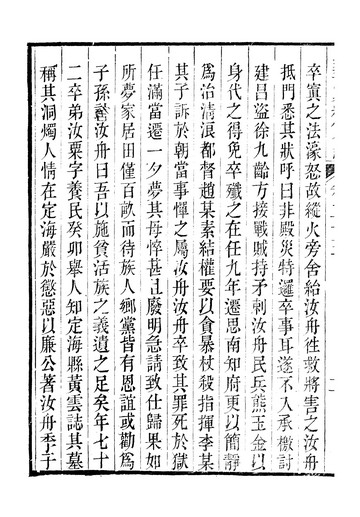 卒實之法濠怒故縱火旁舍紿汝舟徃救將害之汝舟
抵門悉其狀呼曰非殿災特邏卒事耳遂不入承檄討
建昌盜徐九齡方接戰賊持矛刺汝舟民兵熊玉金以
身代之得免卒殲之在任九年遷思南知府更以簡靜
爲治清浪都督趙某素結權要以貪暴杖殺指揮李某
其子訴於朝當事憚之屬汝舟汝舟卒致其罪死於獄
任滿當還一夕夢其母悴甚且廢明急請致仕歸果如
所夢家居田僅百畝而待族人鄉黨皆有恩誼或勸爲
子孫計汝舟曰吾以施貧活族之義遺之足矣年七十
二卒弟汝栗字養民癸卯舉人知定海縣黄雲誌其墓
稱其洞燭人情在定海嚴於懲惡以廉公著汝舟季子